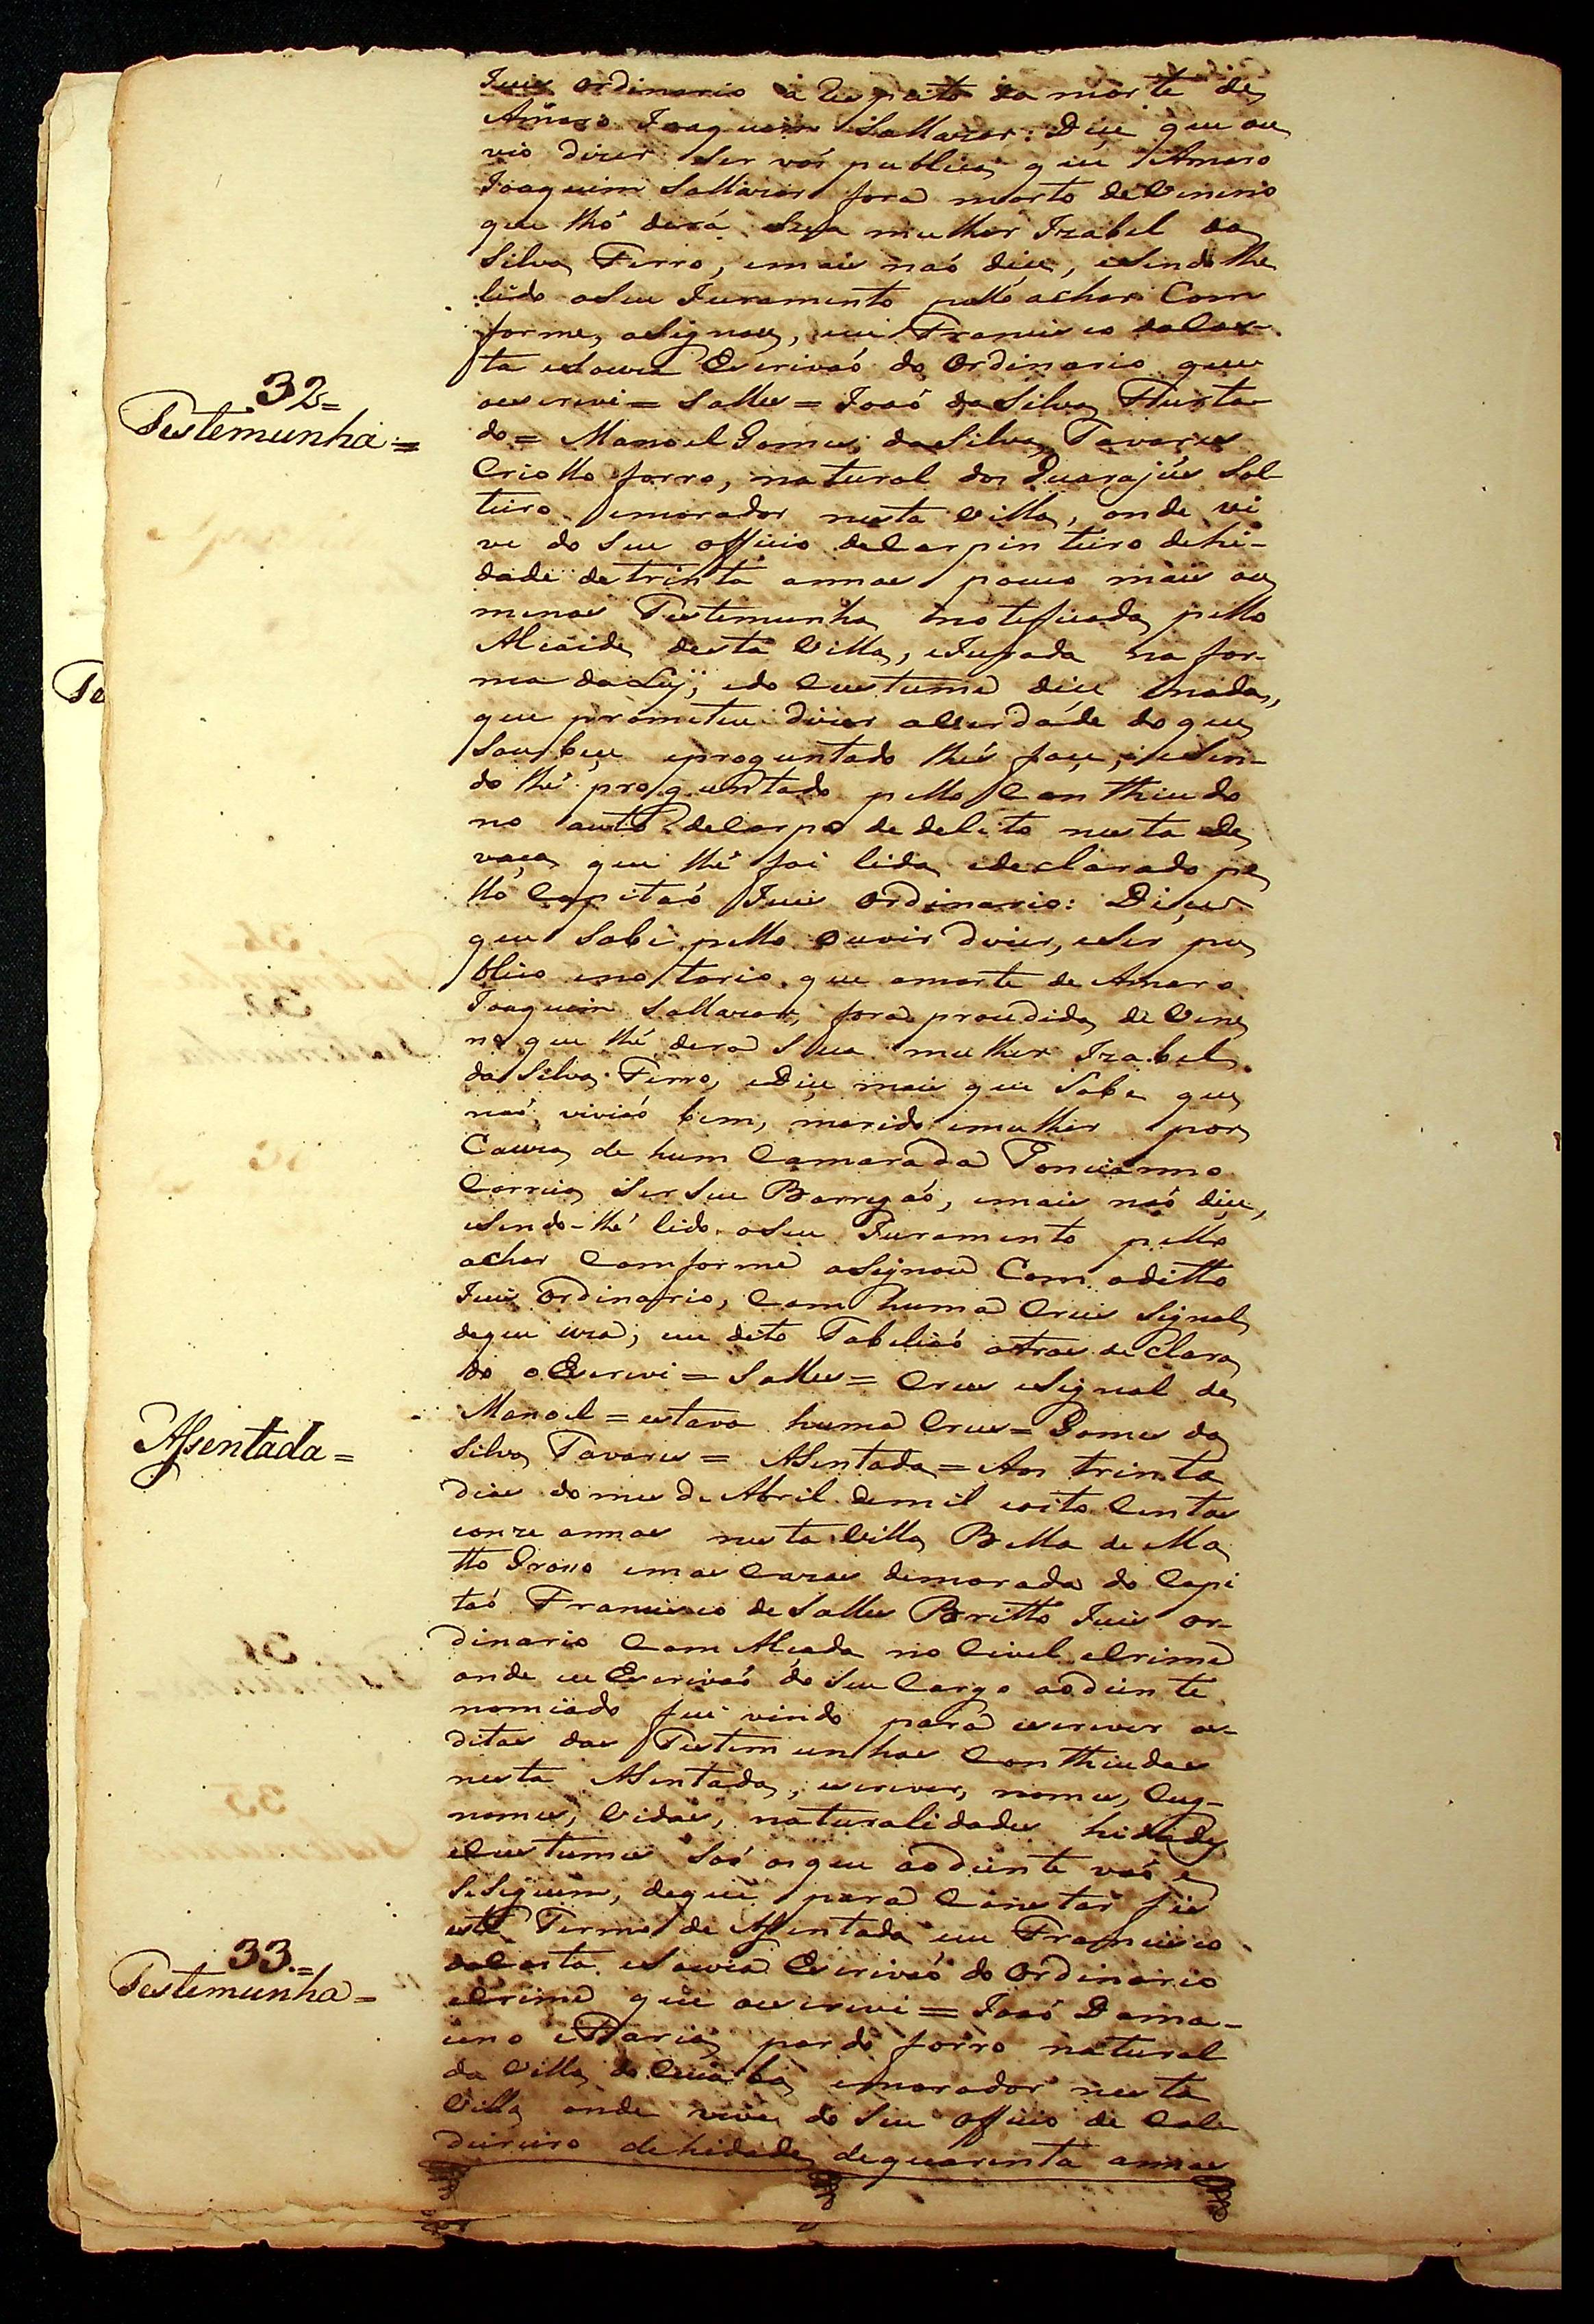 Juis ordinario a Respeito da morte de
Amaro Joaquim Sallazar: Dice que ou
vio dizer ser vós publica que Amaro
Joaquim Sallazar fora morto de Veneno
que lhó derá sua mulher Izabel da
Silva Ferro, emais naó dice, esendolhe
lido oSeu Juramento pelló achar Com
forme, asignou, eu Francisco daCos-
ta eSouza Escrivaó do Ordinario que
oescrevi = Salles = Joaó da Silva Furta
do = Manoel Gomes da Silva Tavares
32=
Testemunha=
Criollo forro, natural dos Guarajús Sol
teiro emorador nesta Villa, onde vi
ve do Seu officio deCarpinteiro dehi-
dade detrinta annos pouco mais ou
menos Testemunha noteficada pello
Alcaide desta Villa, eJurada na for-
ma daLeÿ, edo Custume dice nada,
que prometeu dizer aVerdáde do que
Soubeçe eproguntado lhé foçe, eSen-
do lhé proguntado pello Conthiudo
no auto deCorpo de delito nesta De
vaça que lhé foi lida edeclarado pe
lló Capitaó Juis Ordinario: Diçe
que Sabe pello Ouvir dizer, eSer pu
blico enotorio que amorte de Amaro
Joaquim Sallazar, fora procedida de Vene
no que lhé dera Sua mulher Izabel
da Silva Ferro, eDiçe mais que Sabe que
naó viviaó bem, marido emulher por
Cauza de hum Camarada Poncianno
Correia Ser Seu Barregaó, emais naó dice,
eSendo-lhé lido oSeu Juramento pello
achar Comforme aSignou Com oditto
Juis Ordinario, Com huma Crus Signal
deque uza; eu dito Tabeliaó atras declara
do oEscrevi = Salles = Crus eSignal de
Manoel = estava huma Crus = Gomes da
Assentada=
Silva Tavares = ASentada = Aos trinta
dias do mes de Abril demil eoito Centos
eonze annos nesta Villa Bella de Ma
tto Groço emas Cazas demorada do Capi
taó Francisco de Salles Britto Juis or-
dinario Com Alcada no Civel eCrime
onde eu Escrivaó do Seu Cargo aodiente
nomiado fui vindo para escrever os
ditos das Testemunhas Conthiudas
nesta ASentada, escrever, nomes, Cug-
nomes, Vidas, naturalidades hidades
eCustumes Saó osque aodiente vaó e
Seseguem, deque para Constar fis
este Termo de Assentada eu Francisco
daCosta eSouza Escrivaó do Ordinario
eCrime que oescrevi = Joaó Dama-
33.=
Testemunha=
ceno eFaria pardo forro natural
da Villa do Cuiaba emorador nesta
Villa onde vive do Seu officio de Cal
deireiro dehidade dequarenta annos